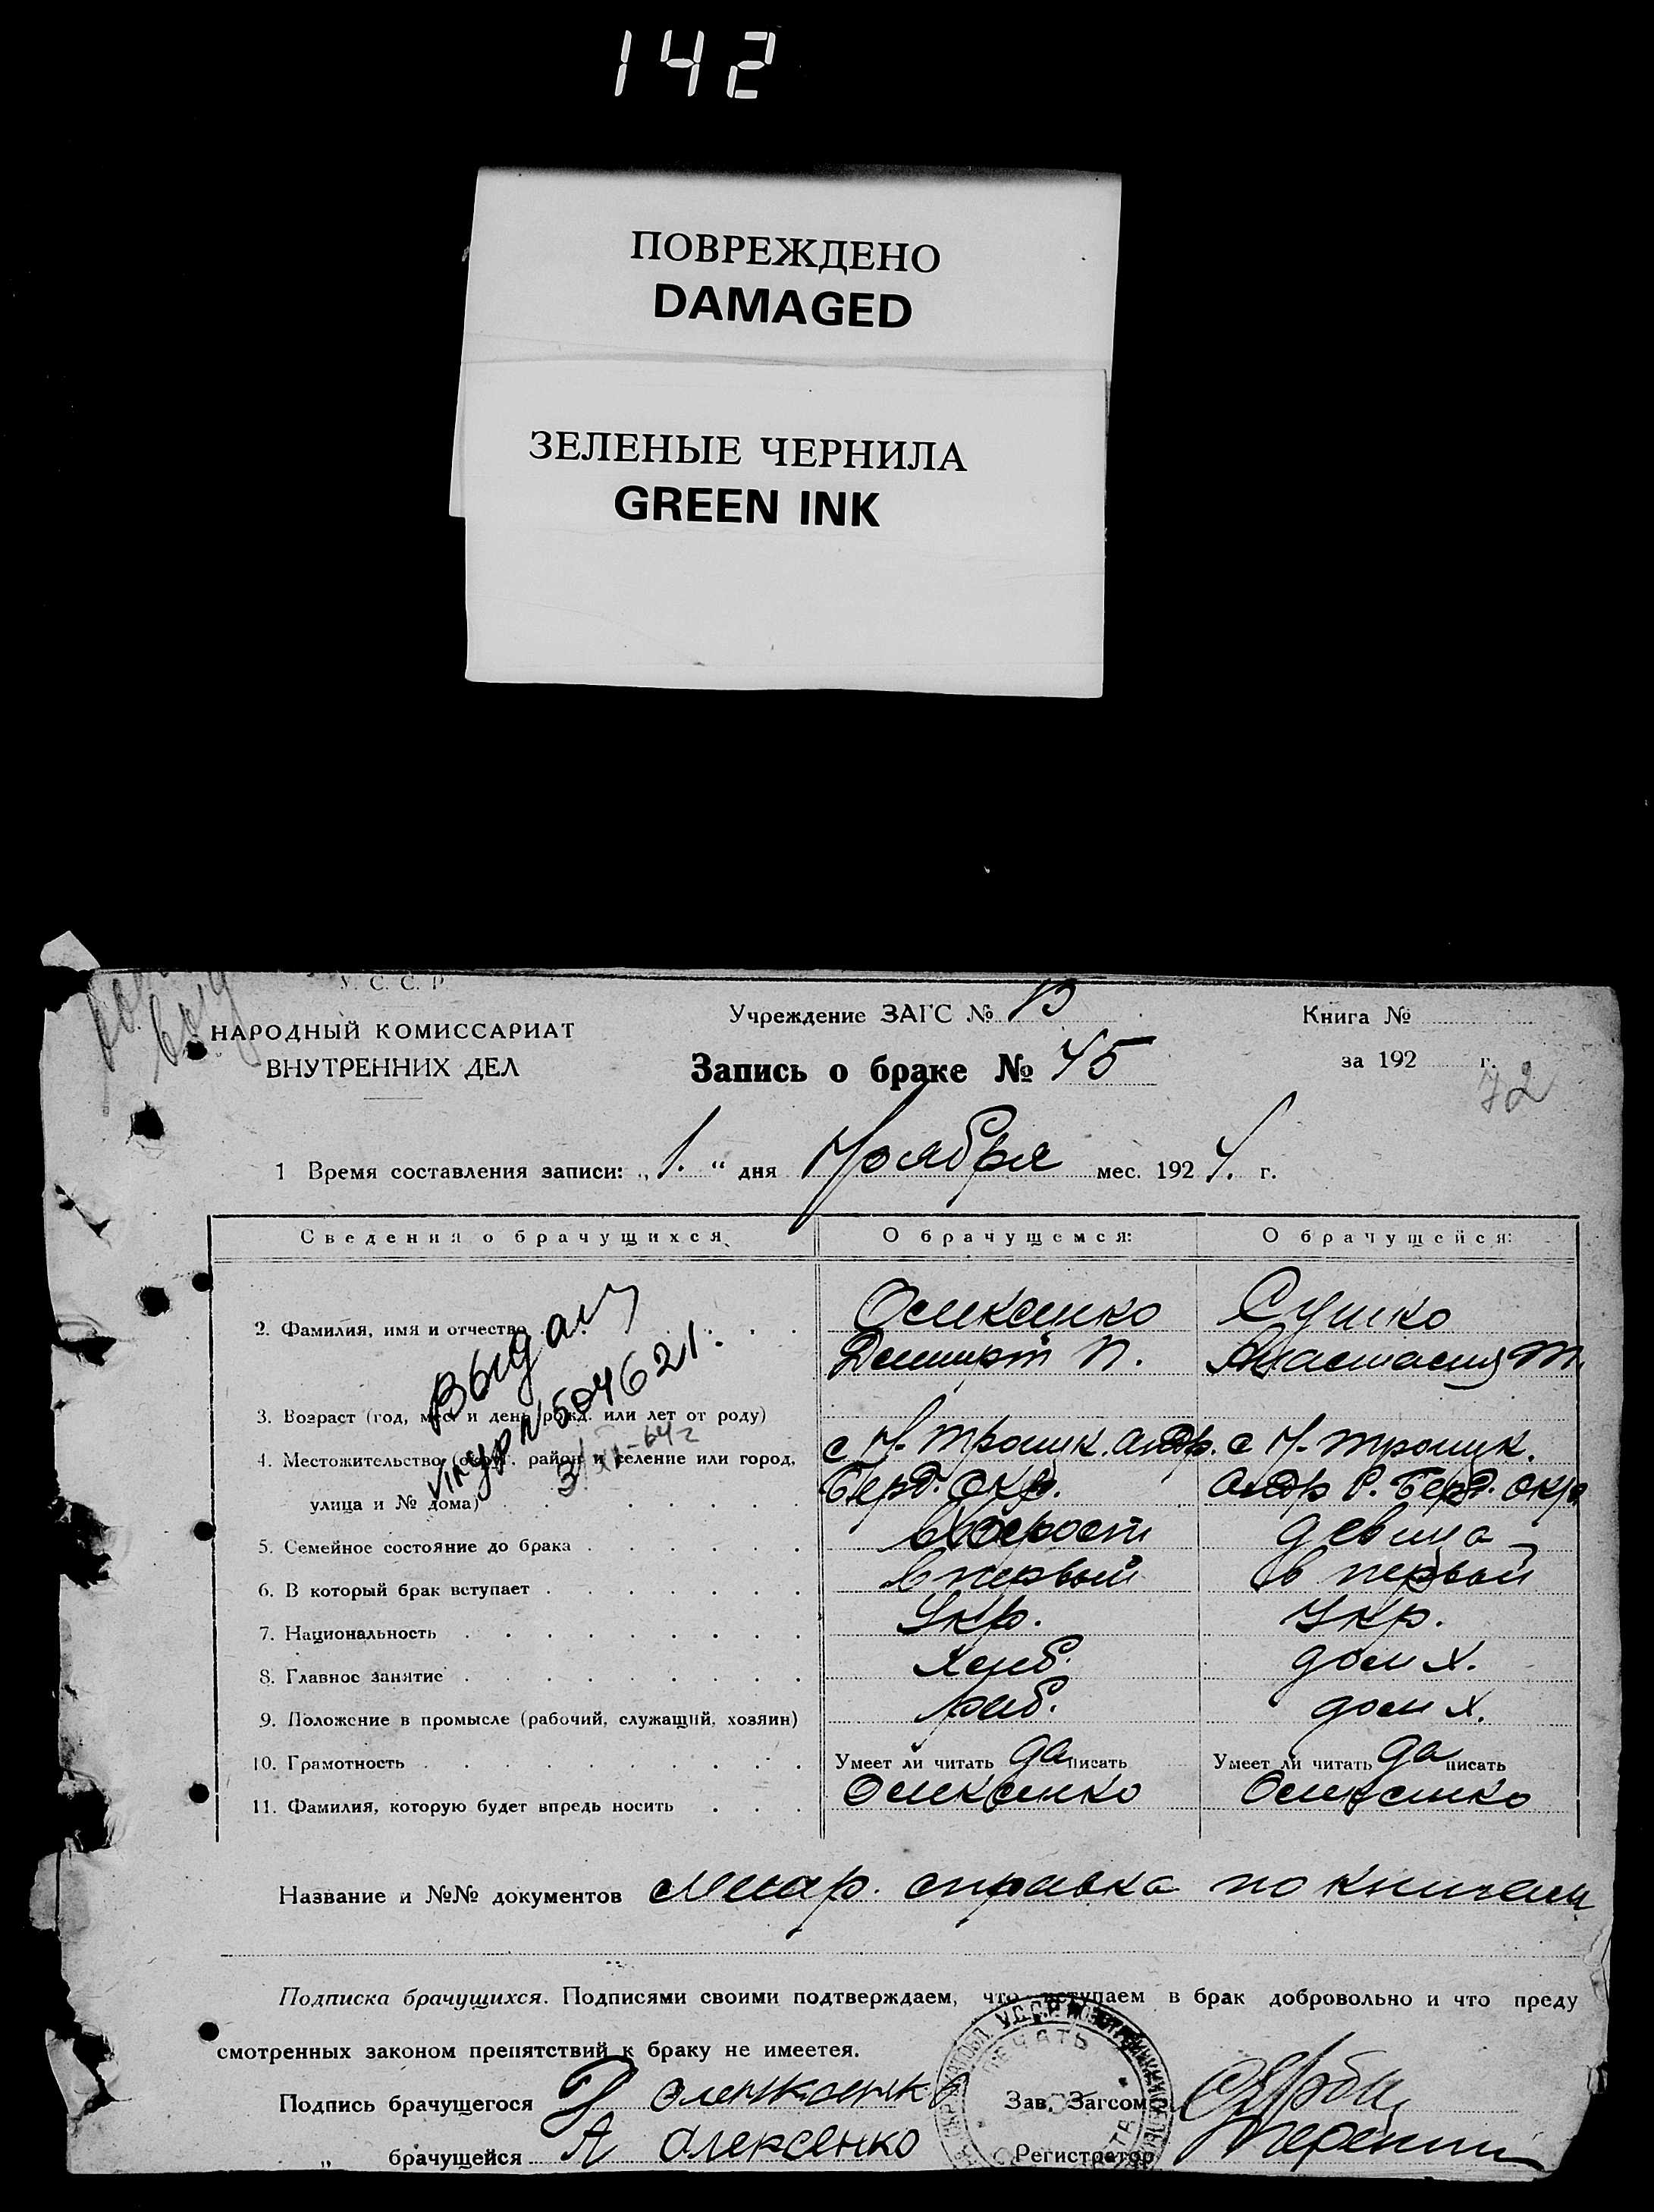 142
ПОВРЕЖДЕНО
DAMAGED
ЗЕЛЕНЫЕ ЧЕРНИЛА
GREEN INK
У. С. С. Р
НАРОДНЫЙ КОМИССАРИАТ
ВНУТРЕННИХ ДЕЛ
Учреждение ЗАГС №
Книга №
Запись о браке № 45
за 192 г.
72
1 Время составления записи: „ 1. “ дня Ноября мес. 192 4. г.
Сведения о брачущихся О брачущемся: О брачущейся:
2. Фамилия, имя и отчество Олексенко Сушко
П. Анастасия
3. Возраст (год, мес. и день рожд. или лет от роду)
4. Местожительство (округ, район и селение или город, с Н. Троицк. Андр. с Н. Троицк.
улица и № дома) Берд. окр. Андр Р. Берд. окр
5. Семейное состояние до брака холост девица
6. В который брак вступает в первый в первый
7. Национальность Укр. Укр.
8. Главное занятие Хлеб. дом х.
9. Положение в промысле (рабочий, служащий, хозяин) раб. дом х.
10. Грамотность Умеет ли читать да писать Умеет ли читать да писать
11. Фамилия, которую будет впредь носить Олексенко Олексенко
504621.
Название и №№ документов справка по книгам
Подписка брачущихся. Подписями своими подтверждаем, что вступаем в брак добровольно и что преду
смотренных законом препятствий к браку не имеетея.
Подпись брачущегося Зав. Загсом
„ брачущейся А Алексенко Регистратор
ПЕЧАТЬ